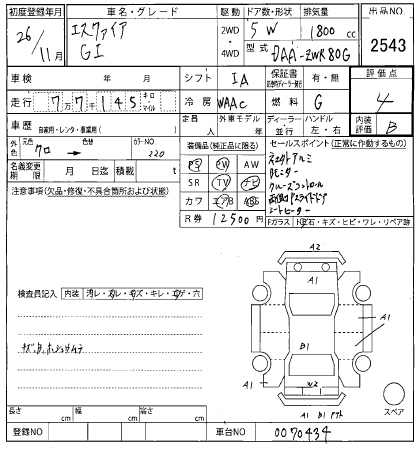 初度登録年月 車名・グレード 駆動 ドア数・形状 排気量 出品NO.
26/11月 エスクァイア GI 2WD・4WD 5 W 1800 cc 2543
型式 DAA-ZWR80G
車検 年 月 シフト IA 保証書 有・無 評価点
走行 7万7千145 キロ マイル 冷房 WAAC 燃料 G 4
定員 外車モデル ディーラー・並行 ハンドル 左・右 内装評価 B
車歴 自家用・レンタ・事業用( )
外色 元色 クロ → 色替 カラーNO 220
装備品(純正品に限る)
PS PW AW
SR TV ナビ
カワ エアB ABS
R券 12500円
セールスポイント(正常に作動するもの)
クルーズコントロール
両側パワースライドドア
シートヒーター
名義変更期限 月 日迄 積載 t
注意事項(欠品・修復・不具合箇所および状態)
Fガラス トビ石・キズ・ヒビ・ワレ・リペア跡
検査員記入 内装 汚レ・スレ・キズ・キレ・コゲ・穴
A2
A1
A1
B1
A1
W2
A1 B1
スペア
長さ cm 幅 cm 高さ cm
登録NO 車台NO 0070434